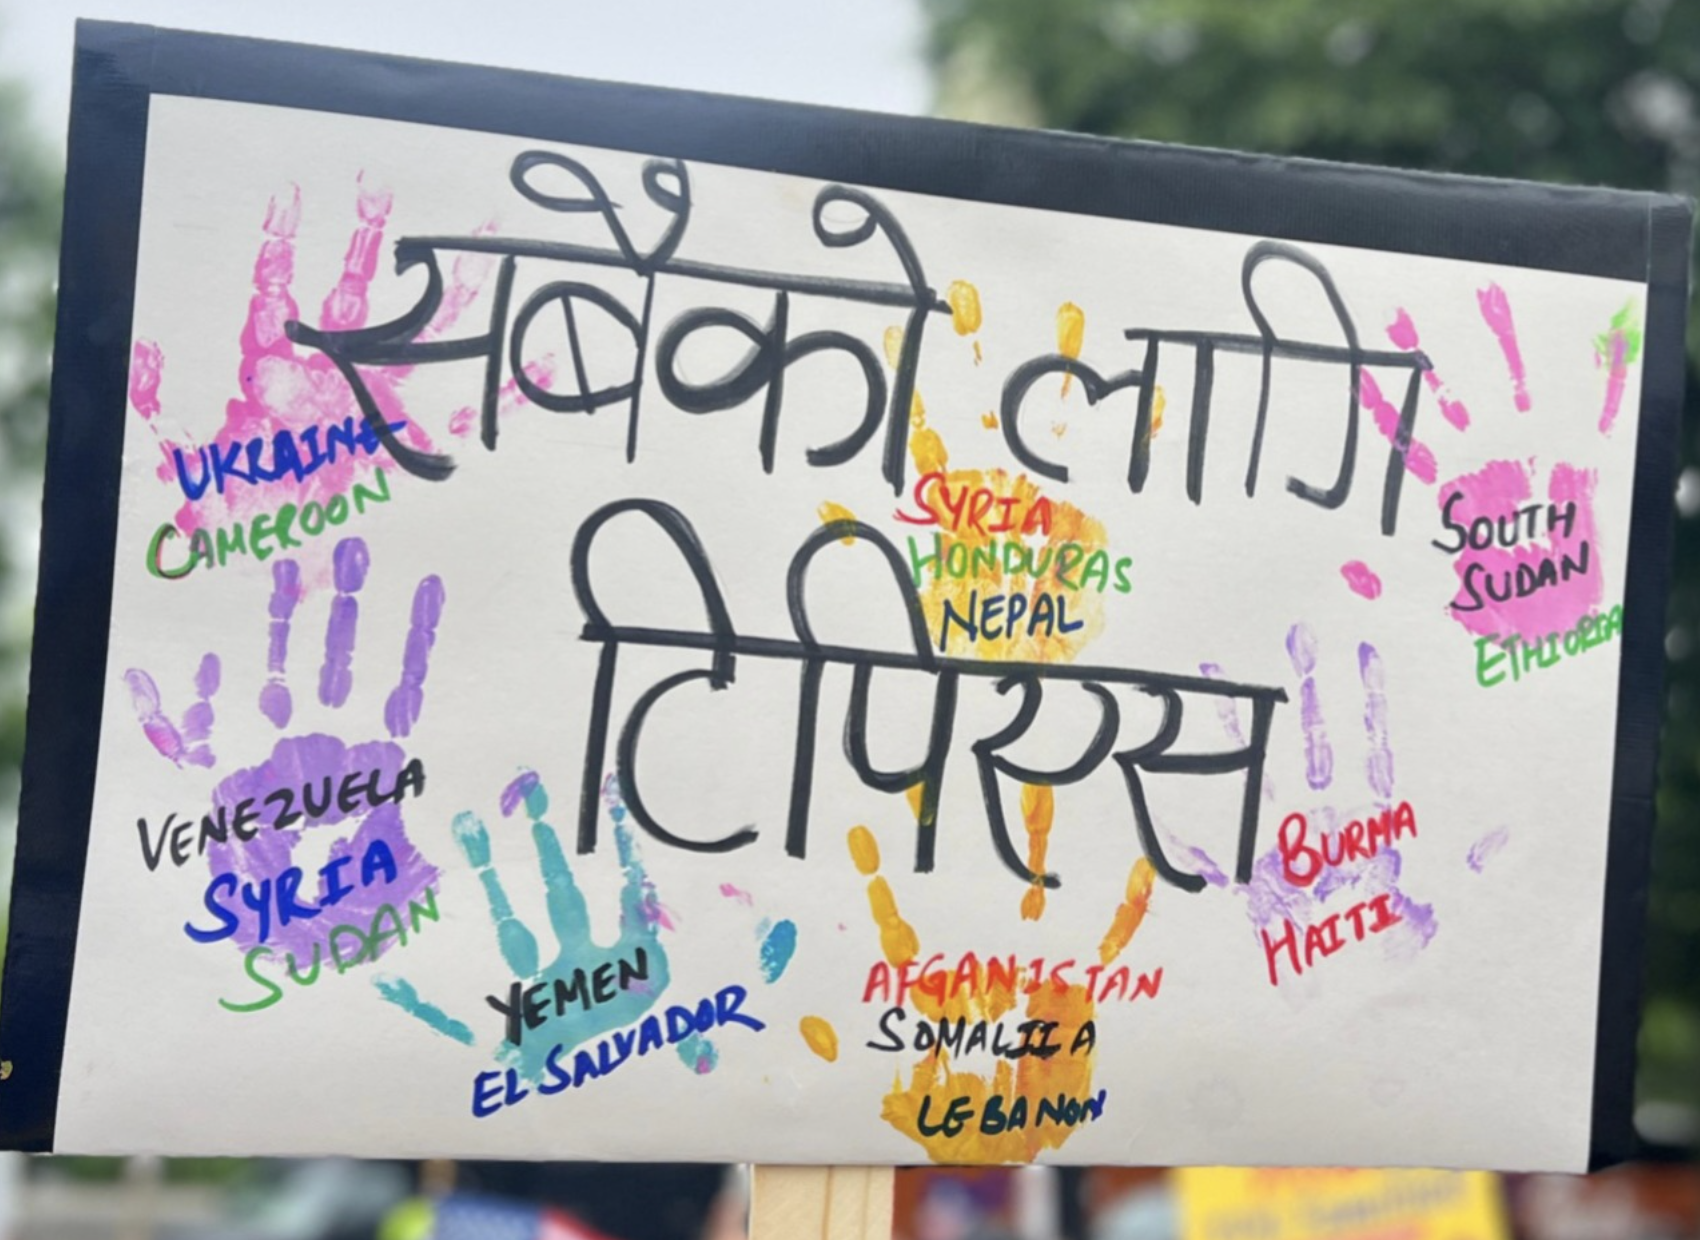 सबैको लागि
टिपिएस
UKRAINE
CAMEROON
SYRIA
HONDURAS
NEPAL
SOUTH
SUDAN
ETHIOPIA
VENEZUELA
SYRIA
SUDAN
YEMEN
EL SALVADOR
AFGANISTAN
SOMALIIA
LEBANON
BURMA
HAITI